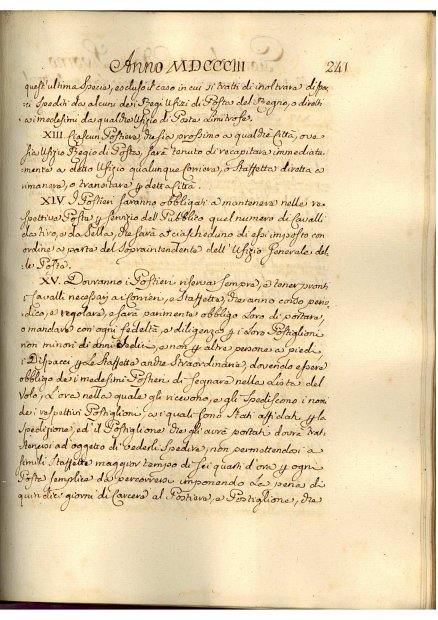 Anno MDCCCIII 241
quest'ultima Specie, escluso il caso in cui si tratti di inoltrare dispac-
ci spediti da alcuni de i Regi Ufizi di Posta del Regno, o diretti
a i medesimi da qualche Ufizio di Posta Limitrofo.
XIII Ciascun Postiere, che sia prossimo a qualche Città, ove
sia Ufizio Regio di Posta, sarà tenuto di recapitare immediata-
mente a detto Ufizio qualunque Corriere, o Staffetta diretta a
rimanere, o transitare p detta Città.
XIV I Postieri saranno obbligati a mantenere nelle re-
spettive Poste p servizio del Pubblico quel numero di Cavalli
da tiro, e da Sella, che sarà a ciascheduno di essi imposto con
ordine a parte del Sopraintendente dell'Ufizio Generale del-
le Poste.
XV. Dovranno i Postieri riservar sempre, e tener pronti
i Cavalli necessarj a i Corrieri, e Staffette, che anno corso perio-
dico, e regolare, e sarà parimente obbligo loro di portare,
o mandare con ogni fedeltà, e diligenza p i loro Postiglioni
non minori di anni sedici, e non p altre persone a piedi,
i Dispacci p le Staffette anche Straordinarie, dovendo essere
obbligo de i medesimi Postieri di segnare nella Lista del
Volo, L'ora nella quale gli ricevono, e gli Spediscono i nomi
de i respettivi Postiglioni, a i quali sono stati affidati p la
Spedizione, ed il Postiglione che gli avrà portati dovrà trat-
tenersi ad oggetto di vederli Spedire, non permettendosi a
simili Staffette maggior tempo di sei quarti d'ora p ogni
Posta semplice da percorrersi imponendo La pena di
quindici giorni di Carcere al Postiere, e Postiglione, che